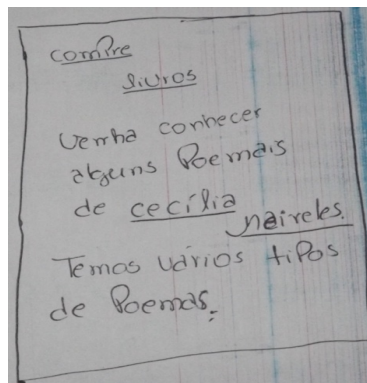 Compre
livros
Venha conhecer
alguns Poemais
de cecília
naireles.
Temos vários tipos
de Poemas.